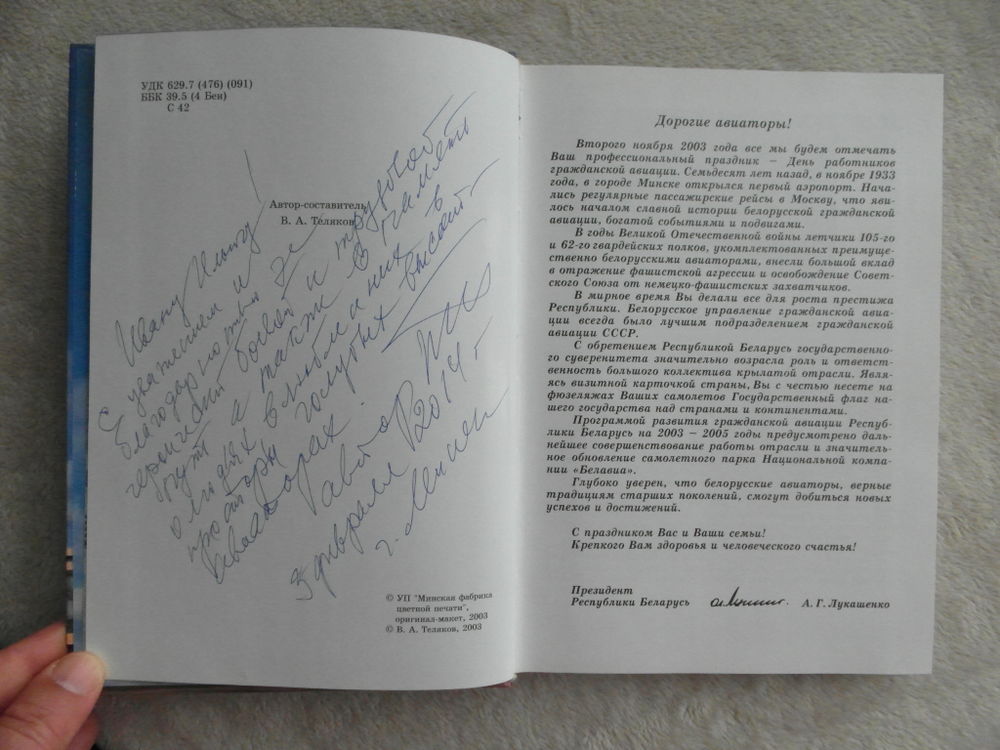 УДК 629.7 (476) (091)
ББК 39.5 (4 Бен)
С 42
Автор-составитель
В. А. Теляков
Ивану Ильичу!
С уважением и
благодарностью за
героический боевой и трудовой
путь а также в память
о людях влюбленных в
просторы голубых высот
авиаторах!
Автор
5 февраля 2014 г.
г. Минск
© УП "Минская фабрика
цветной печати",
оригинал-макет, 2003
© В. А. Теляков, 2003
Дорогие авиаторы!
Второго ноября 2003 года все мы будем отмечать
Ваш профессиональный праздник – День работников
гражданской авиации. Семьдесят лет назад, в ноябре 1933
года, в городе Минске открылся первый аэропорт. Нача-
лись регулярные пассажирские рейсы в Москву, что яви-
лось началом славной истории белорусской гражданской
авиации, богатой событиями и подвигами.
В годы Великой Отечественной войны летчики 105-го
и 62-го гвардейских полков, укомплектованных преимуще-
ственно белорусскими авиаторами, внесли большой вклад
в отражение фашистской агрессии и освобождение Совет-
ского Союза от немецко-фашистских захватчиков.
В мирное время Вы делали все для роста престижа
Республики. Белорусское управление гражданской авиа-
ции всегда было лучшим подразделением гражданской
авиации СССР.
С обретением Республикой Беларусь государственно-
го суверенитета значительно возрасла роль и ответ-
ственность большого коллектива крылатой отрасли. Явля-
ясь визитной карточкой страны, Вы с честью несете на
фюзеляжах Ваших самолетов Государственный флаг на-
шего государства над странами и континентами.
Программой развития гражданской авиации Респуб-
лики Беларусь на 2003 – 2005 годы предусмотрено даль-
нейшее совершенствование работы отрасли и значитель-
ное обновление самолетного парка Национальной компа-
нии «Белавиа».
Глубоко уверен, что белорусские авиаторы, верные
традициям старших поколений, смогут добиться новых
успехов и достижений.
С праздником Вас и Ваши семьи!
Крепкого Вам здоровья и человеческого счастья!
Президент
Республики Беларусь
А. Г. Лукашенко